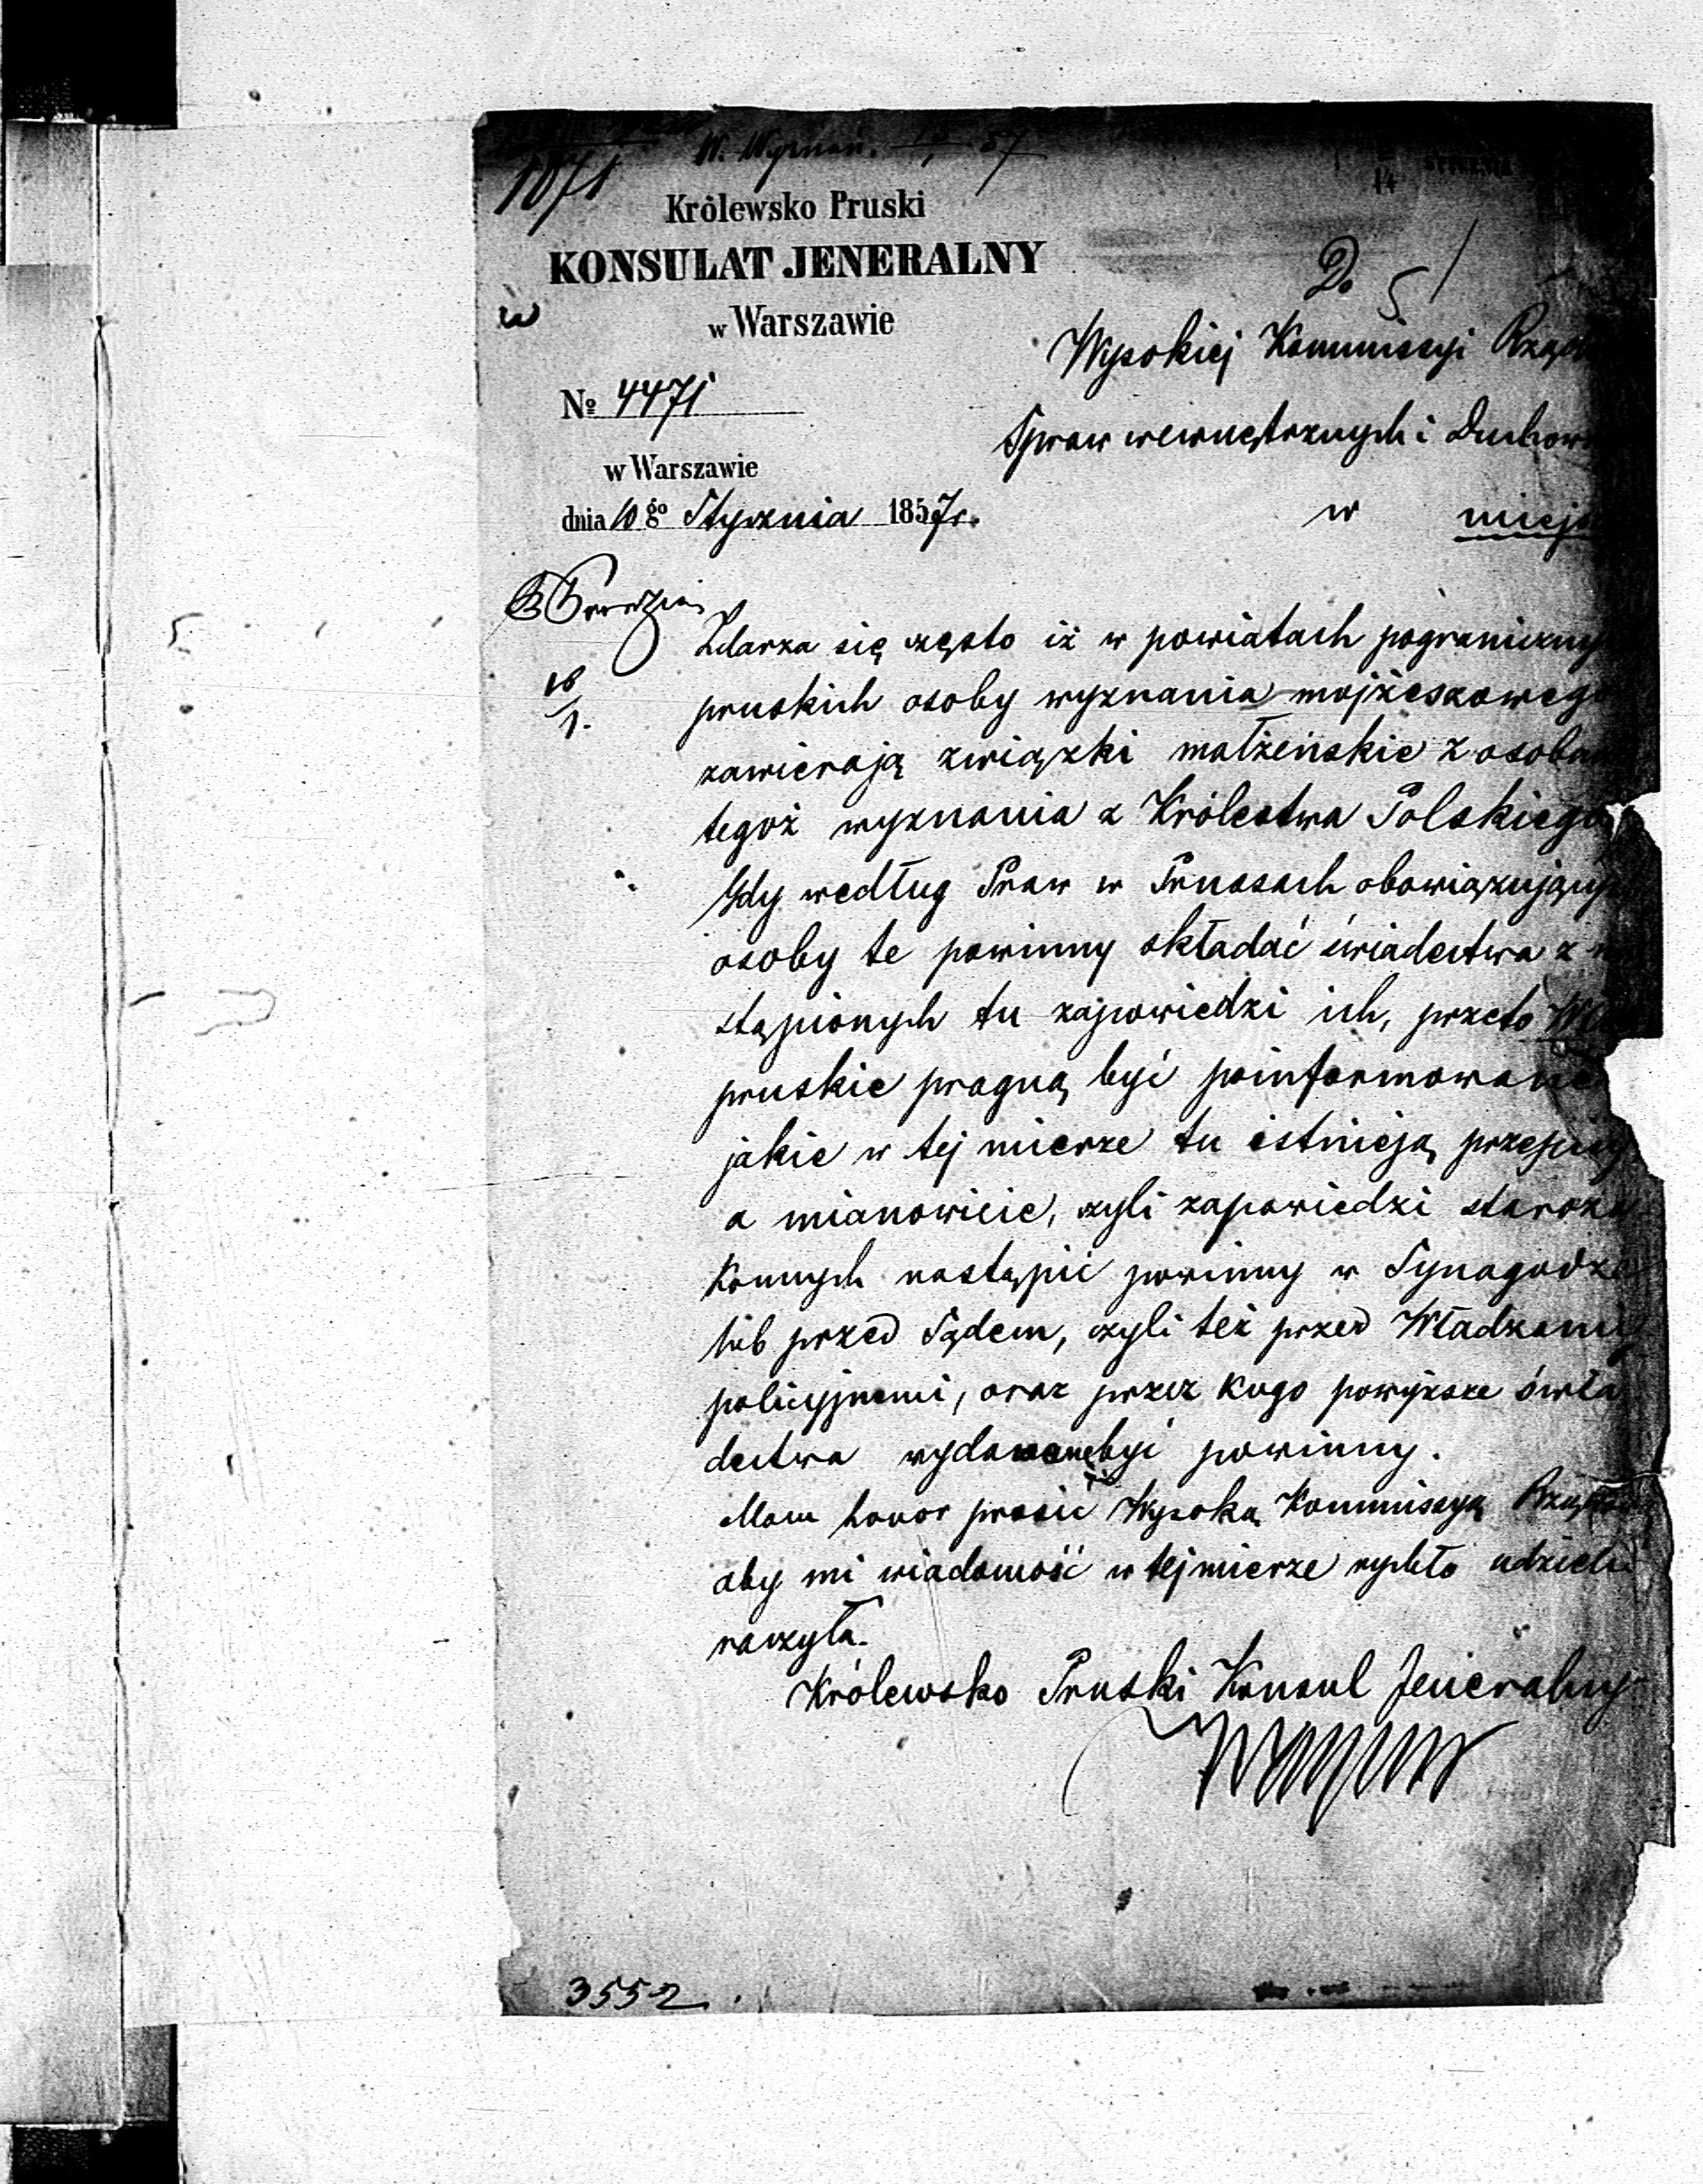 1071 W. Wyznań. 57
14
Królewsko Pruski
KONSULAT JENERALNY
w Warszawie
Do
Wysokiej Kommissyi Rząd
№ 4471
Spraw wewnętrznych i Duchow
w Warszawie
dnia 10 go Stycznia 1857r.
w miejs
16/1.
Zdarza się często iż w powiatach pogranicznyc
pruskich osoby wyznania mojżeszowego
zawierają związki małżeńskie z osobam
tegoż wyznania z Królestwa Polskiego
Gdy według Praw w Prusach obowiązującyc
osoby te powinny składać świadectwa z n
stąpionych tu zapowiedzi ich, przeto Wła
pruskie pragną być poinformowane
jakie w tej mierze tu istnieją przepisy
a mianowicie, czyli zapowiedzi staroza
konnych nastąpić powinny w Synagodze
lub przed Sądem, czyli też przed Władzami
policyjnemi, oraz przez kogo powyższe świa
dectwa wydawane być powinny.
Mam honor prosić Wysoką Kommissyą Rządow
aby mi wiadomość w tej mierze rychło udzieli
raczyła.
Królewsko Pruski Konsul Jeneralny
3552.